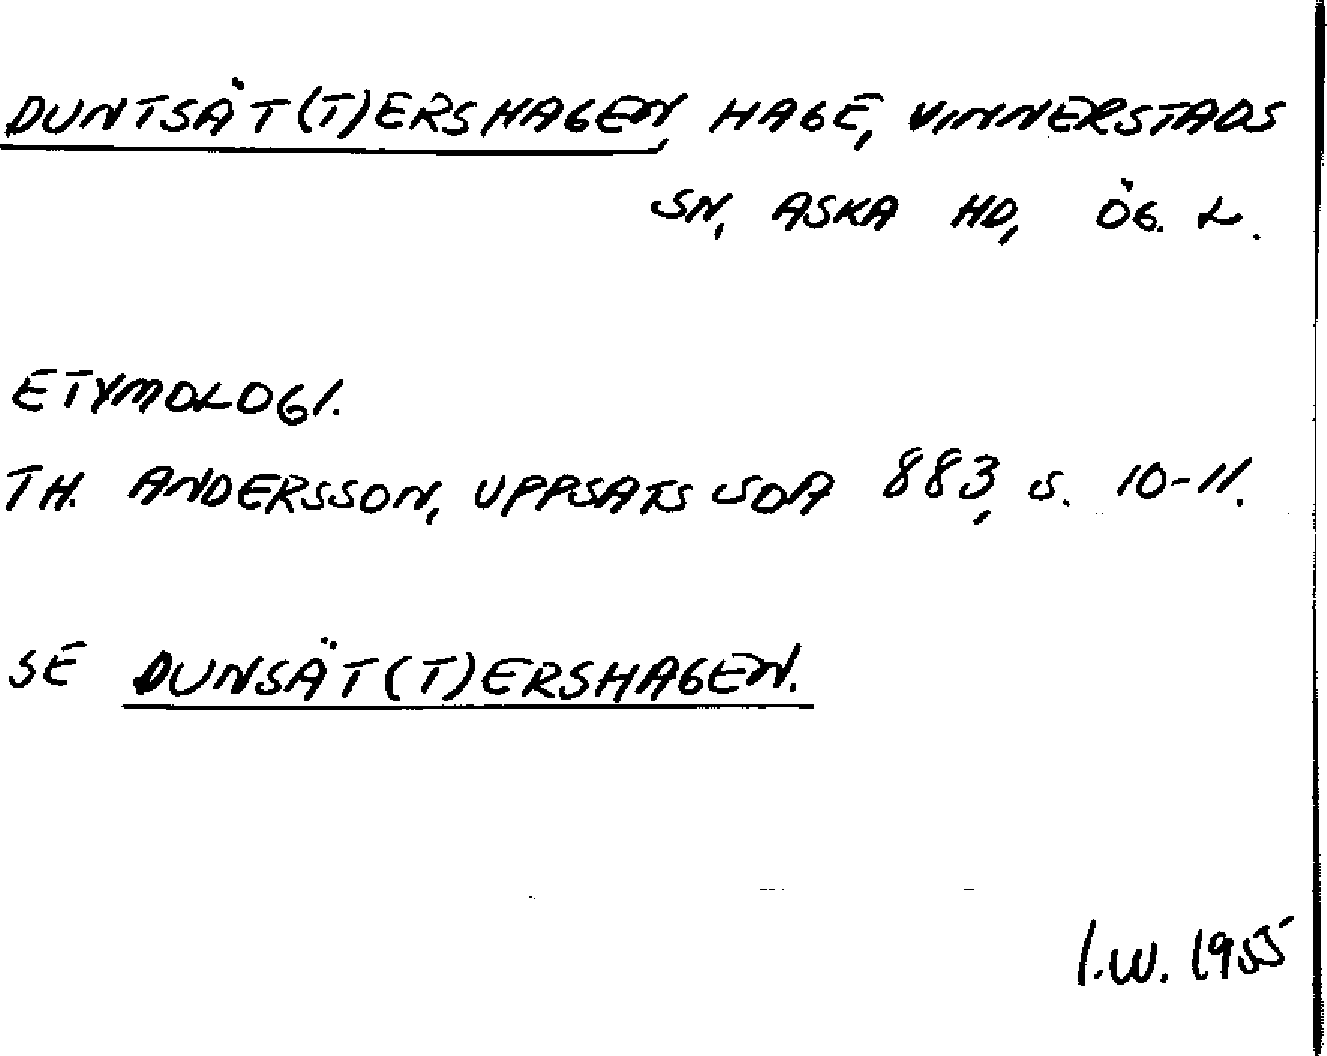 DUNTSÄT(T)ERSHAGEN, HAGE, VINNERSTADS
SN, ASKA HD, ÖG. L.
ETYMOLOGI.
TH. ANDERSSON, UPPSATS SOA 883, S. 10-11.
SE DUNSÄT(T)ERSHAGEN.
I.W. 1955